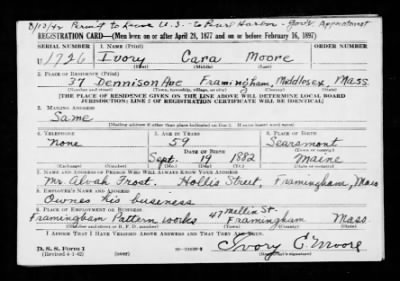 8/13/42 Permit to leave U.S. - to Pearl Harbor - Gov't Appointment
REGISTRATION CARD—(Men born on or after April 28, 1877 and on or before February 16, 1897)
SERIAL NUMBER 1. NAME (Print)
U 1726 Ivory Cara Moore
(First) (Middle) (Last)
2. PLACE OF RESIDENCE (Print)
37 Dennison Ave Framingham, Middlesex, Mass
(Number and street) (Town, township, village, or city) (County) (State)
[THE PLACE OF RESIDENCE GIVEN ON THE LINE ABOVE WILL DETERMINE LOCAL BOARD
JURISDICTION; LINE 2 OF REGISTRATION CERTIFICATE WILL BE IDENTICAL]
3. MAILING ADDRESS
Same
(Mailing address if other than place indicated on line 2. If same insert word same)
4. TELEPHONE 5. AGE IN YEARS 6. PLACE OF BIRTH
none 59 Searsmont
DATE OF BIRTH (Town or county)
Sept. 19 1882 Maine
(Exchange) (Number) (Mo.) (Day) (Yr.) (State or country)
7. NAME AND ADDRESS OF PERSON WHO WILL ALWAYS KNOW YOUR ADDRESS
Mr. Alvah Frost. Hollis Street, Framingham, Mass
8. EMPLOYER'S NAME AND ADDRESS
Ownes his business
9. PLACE OF EMPLOYMENT OR BUSINESS
Framingham Pattern works 47 Mellin St. Framingham Mass
(Number and street or R. F. D. number) (Town) (County) (State)
I AFFIRM THAT I HAVE VERIFIED ABOVE ANSWERS AND THAT THEY ARE TRUE.
D. S. S. Form 1
(Revised 4-1-42) (over)
Ivory C Moore
(Registrant's signature)